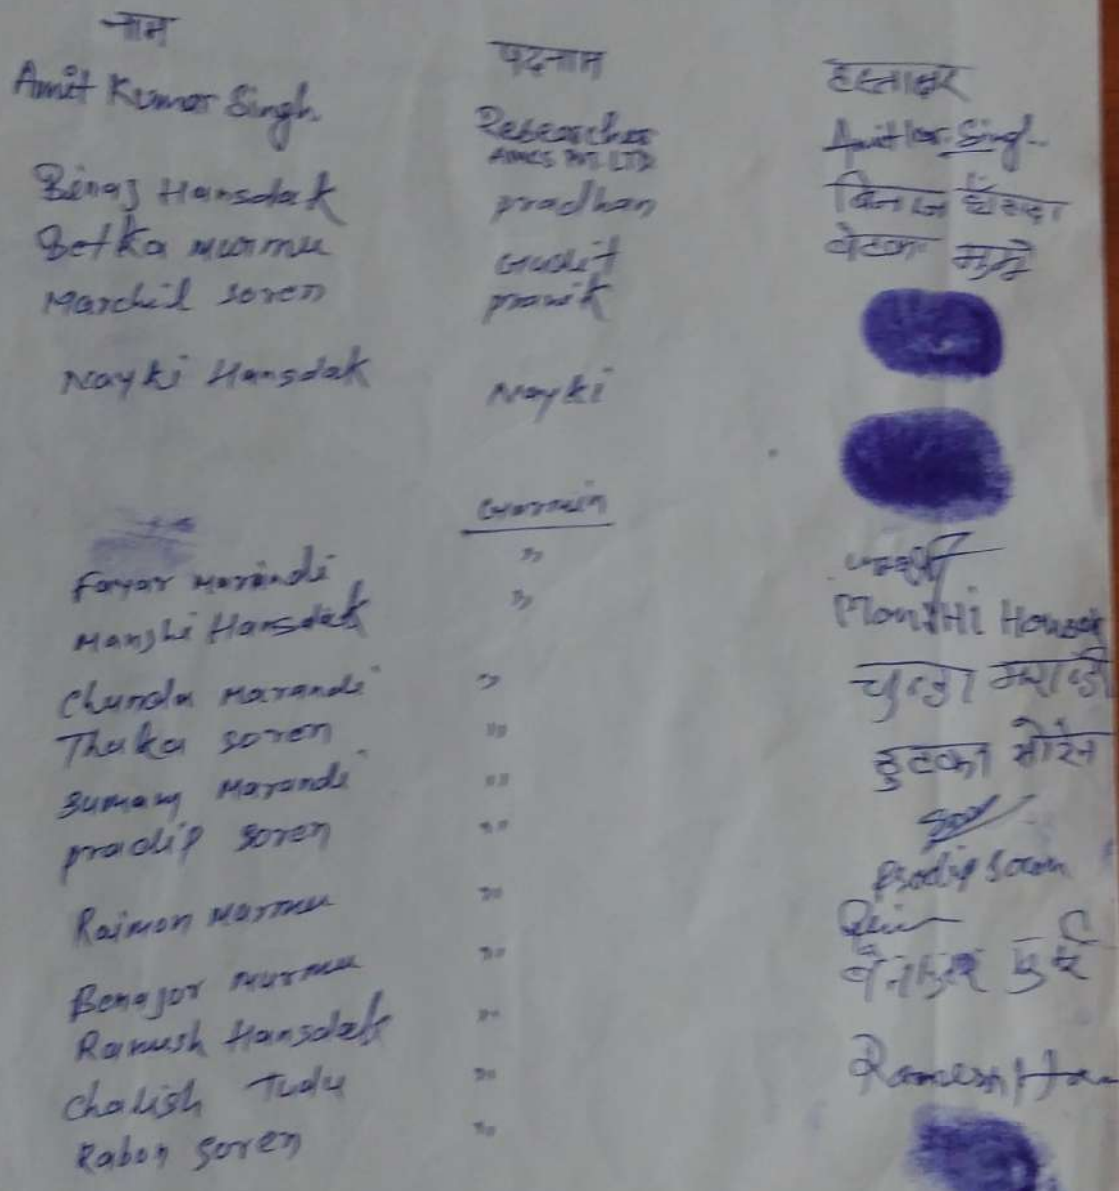 नाम पदनाम हस्ताक्षर
Amit Kumar Singh. Researcher Amit Kr. Singh
AMCS PVT. LTD
Binaj Hansdak pradhan बिनाज हाँसदा
Betka murmu Gudit बेटका मुर्मू
Marchil soren pranik
Nayki Hansdak Nayki
Faryar Marandi "
Manjhi Hansdak " Manjhi
Chunda Marandi " चुन्डा मराण्डी
Thaka soren " सोरेन
Sumang Marandi "
pradip soren " Pradip Soren
Raimon Marmu "
Benajor Murmu "
Ramesh Hansdak "
Chalish Tudu "
Rabon Soren "